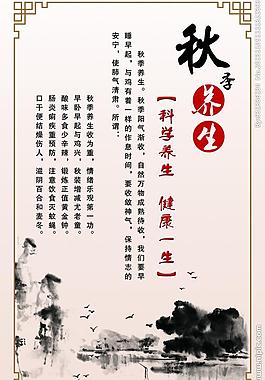 秋季养生
【科学养生 健康一生】
秋季养生。秋季阳气渐收，自然万物成熟待收，我们要早
睡早起，与鸡有着一样的作息时间，要收敛神气，保持情志的
安宁，使肺气清肃。所谓：
秋季养生收为重，情绪乐观第一功。
早卧早起与鸡兴，秋装增减尤老童。
酸味多食少辛辣，锻炼正值黄金钟。
肠炎痢疾重预防，注意饮食灭蚊蝇。
口干便结燥伤人，滋阴百合和麦冬。